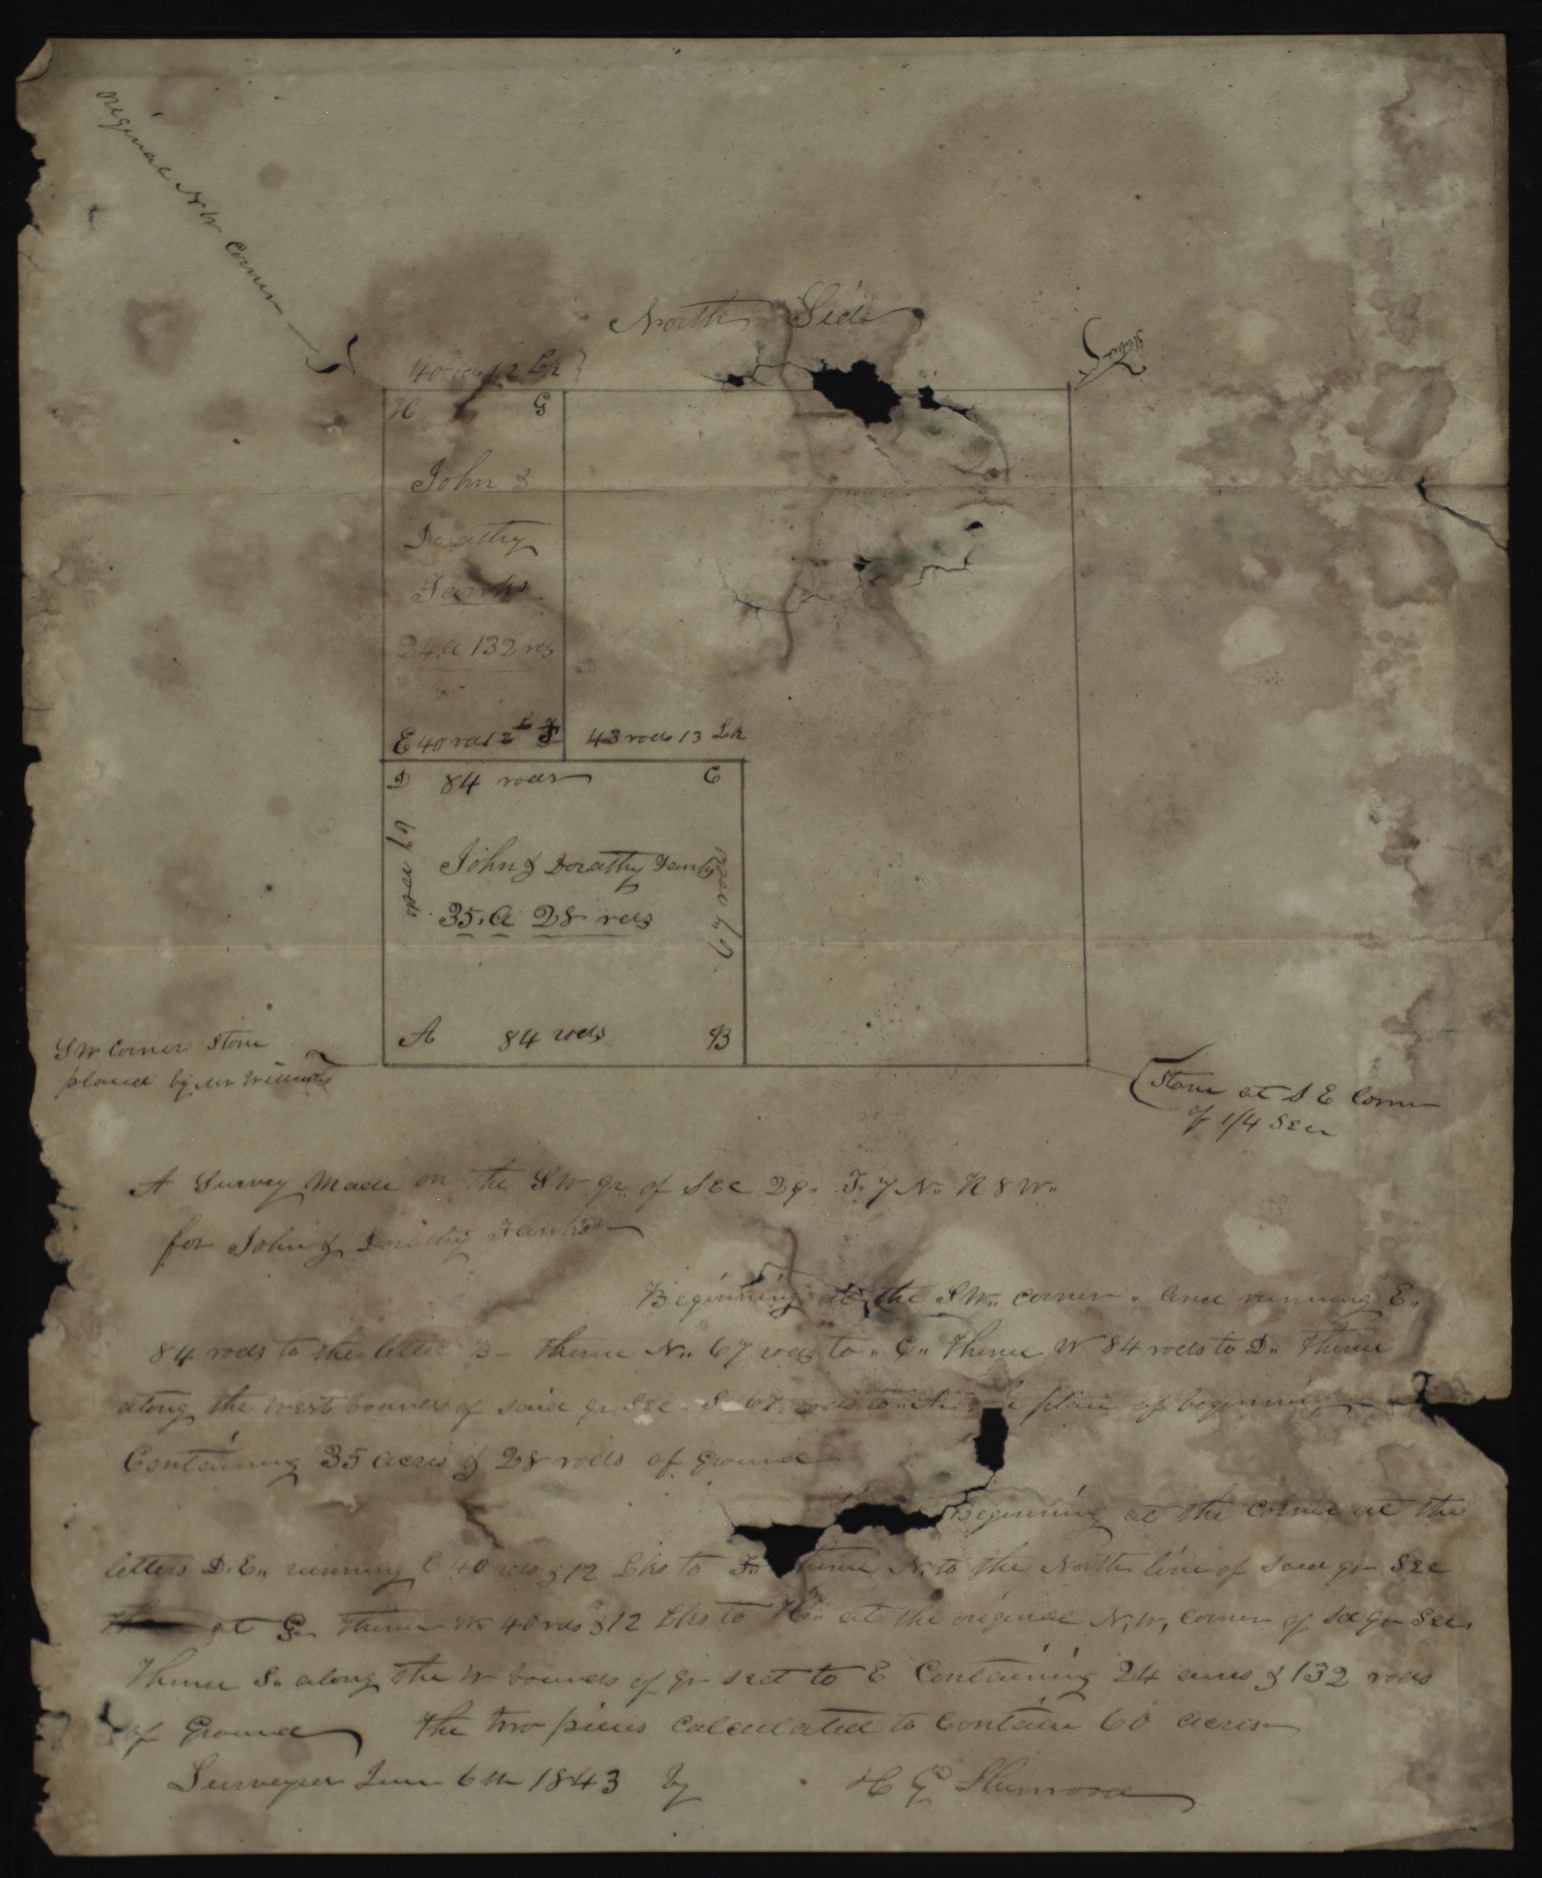 original N W Corner
North Side
40 rods 12 Lk
Stake
H G
John &
Dorathy
24 a 132 rds
E 40 rds 12 L F
43 rods 13 Lk
D 84 rods C
67 rods
John & Dorathy
67 rods
35. a 28 rods
A 84 rods B
S W Corner Stone
placed by Mr
Stone at S E Corner
of 1/4 Sec
A Survey Made on the S W qr. of Sec 29. T. 7 N. R 8 W.
for John & Dorathy
Beginning at the S W. corner. and running E.
84 rods to the letter B - thence N. 67 rods to C. thence W 84 rods to D. thence
along the west bounds of said qr Sec. S. 67 rods to place of beginning
Containing 35 acres & 28 rods of ground
Beginning at the corner at the
letters D. E. running E 40 rods & 12 Lks to F. thence N. to the North line of said qr Sec
at G. Thence W. 40 rds & 12 Lks to H. at the original N. W. corner of sd qr Sec.
Thence S. along the W bounds of qr sect to E Containing 24 acres & 132 rods
of Ground The two pieces Calculated to Contain 60 acres
Surveyed June 6th 1843 by H G